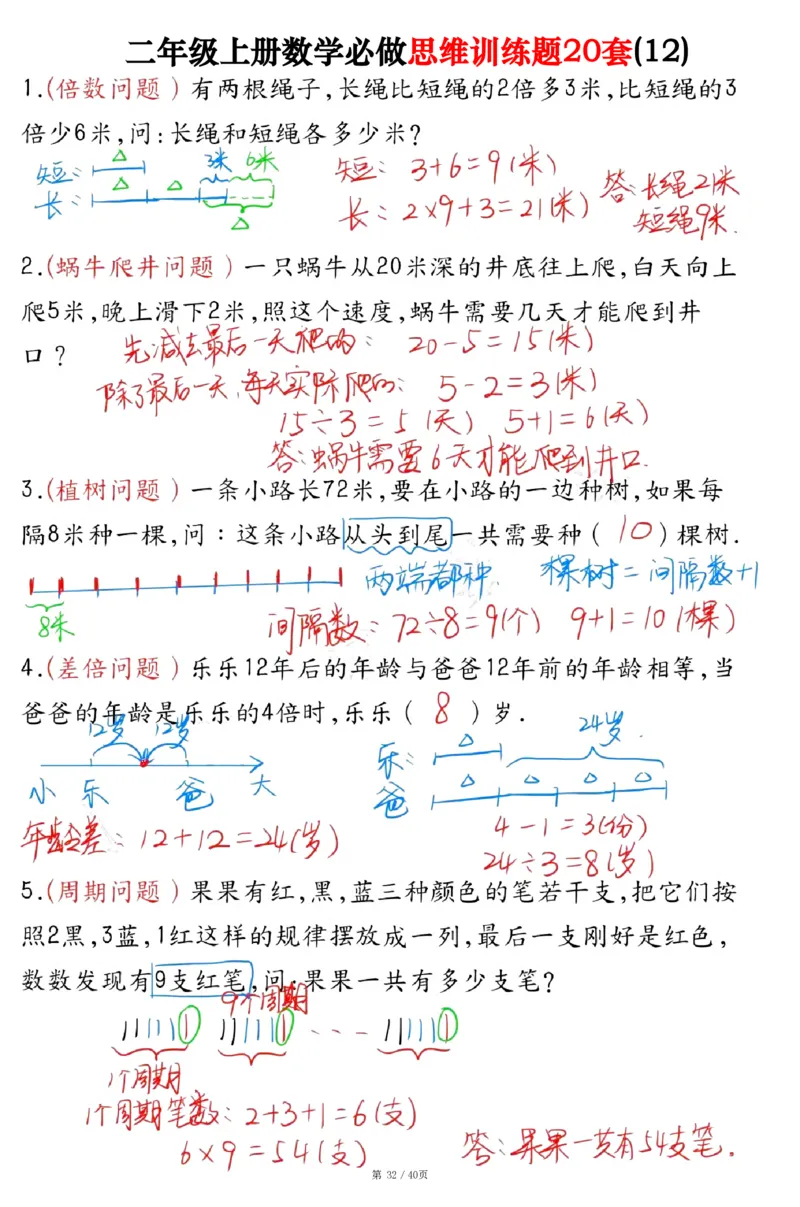 二年级上册数学必做思维训练题20套(12)
1.(倍数问题)有两根绳子,长绳比短绳的2倍多3米,比短绳的3
倍少6米,问:长绳和短绳各多少米?
短: △ 3米 6米
长: △ △
△
短: 3+6=9(米)
长: 2×9+3=21(米)
答:长绳21米
短绳9米.
2.(蜗牛爬井问题)一只蜗牛从20米深的井底往上爬,白天向上
爬5米,晚上滑下2米,照这个速度,蜗牛需要几天才能爬到井
口?
先减去最后一天爬的: 20-5=15(米)
除了最后一天,每天实际爬的: 5-2=3(米)
15÷3=5(天) 5+1=6(天)
答:蜗牛需要6天才能爬到井口.
3.(植树问题)一条小路长72米,要在小路的一边种树,如果每
隔8米种一棵,问:这条小路从头到尾一共需要种( 10 )棵树.
两端都种 棵树=间隔数+1
8米
间隔数: 72÷8=9(个) 9+1=10(棵)
4.(差倍问题)乐乐12年后的年龄与爸爸12年前的年龄相等,当
爸爸的年龄是乐乐的4倍时,乐乐( 8 )岁.
12岁 12岁
小 乐 爸 大
年龄差: 12+12=24(岁)
24岁.
乐: △
爸 △ △ △ △
4-1=3(份)
24÷3=8(岁)
5.(周期问题)果果有红,黑,蓝三种颜色的笔若干支,把它们按
照2黑,3蓝,1红这样的规律摆放成一列,最后一支刚好是红色,
数数发现有9支红笔,问:果果一共有多少支笔?
9个周期
1个周期
1个周期笔数: 2+3+1=6(支)
6×9=54(支)
答:果果一共有54支笔.
第 32 / 40页